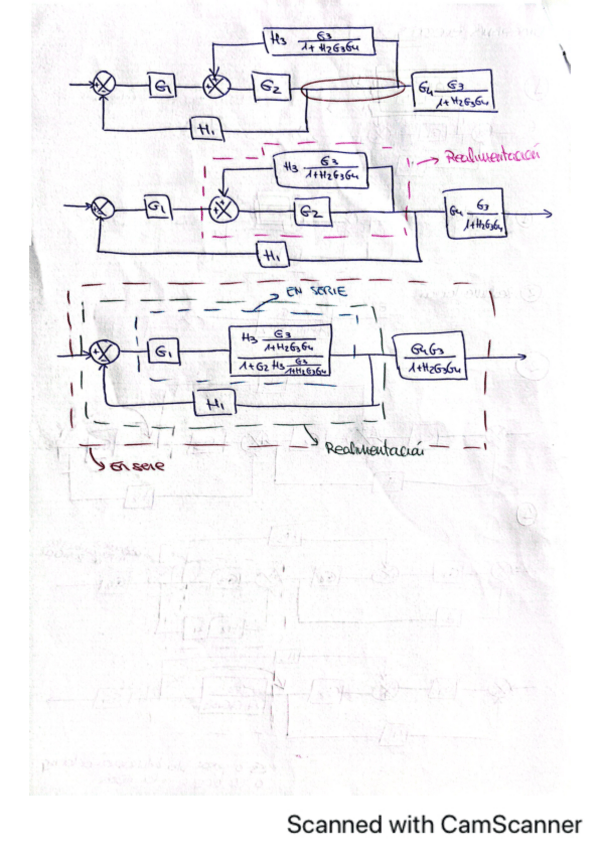 H3 G3
1+H2G3G4
G1
G2
G4 G3
1+H2G3G4
H1
H3 G3
1+H2G3G4
Realimentación
G1
G2
G4 G3
1+H2G3G4
H1
EN SERIE
G1
H3 G3
1+H2G3G4
1+G2 H3 G3
1+H2G3G4
G4G3
1+H2G3G4
H1
Realimentación
En serie
Scanned with CamScanner